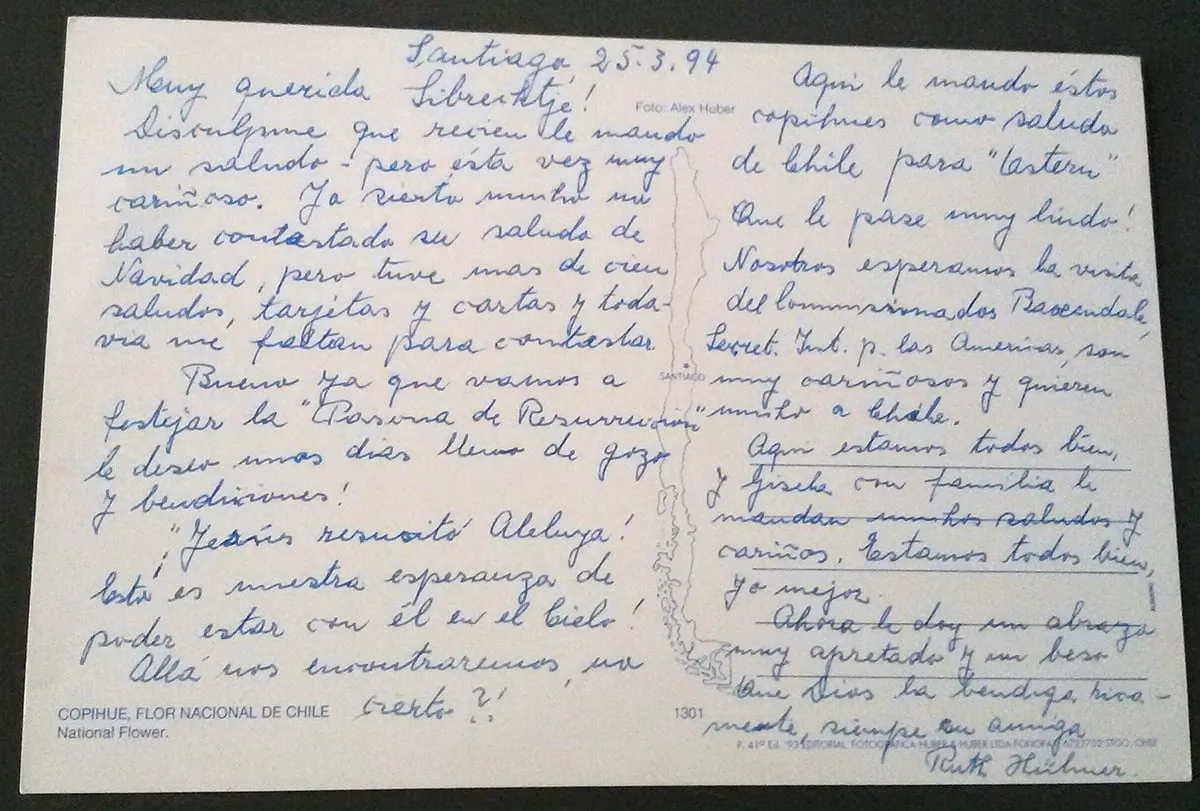 Santiago, 25.3.94
Muy querida
Disculpme que recien le mando
un saludo - pero ésta vez muy
cariñoso. Yo siento mucho no
haber contestado su saludo de
Navidad, pero tuve mas de cien
saludos, tarjetas y cartas y toda-
via me faltan para contestar.
Bueno ya que vamos a
festejar la "Pascua de Resurrección"
le deseo unos dias lleno de gozo
y bendiciones!
¡"Jesús resucitó Aleluya!
Esta es nuestra esperanza de
poder estar con él en el Cielo!
Allá nos encontraremos, no
cierto?!
COPIHUE, FLOR NACIONAL DE CHILE
National Flower.
Foto: Alex Huber
SANTIAGO
1301
Aqui le mando éstos
copihues como saludo
de Chile para "Ostern"
Que le pase muy lindo!
Nosotros esperamos la visita
del Commisionados Baxendale,
Secret. Int. p. las Americas, son
muy cariñosos y quieren
mucho a Chile.
Aqui estamos todos bien,
y Gisela con familia le
mandan muchos saludos y
cariños. Estamos todos bien,
yo mejor.
Ahora le doy un abrazo
muy apretado y un beso
Que Dios la bendiga rica-
mente, siempre su amiga
P. 41º Ed. '93 EDITORIAL FOTOGRAFICA HUBER & HUBER LTDA STGO. CHILE
Ruth Hübner.